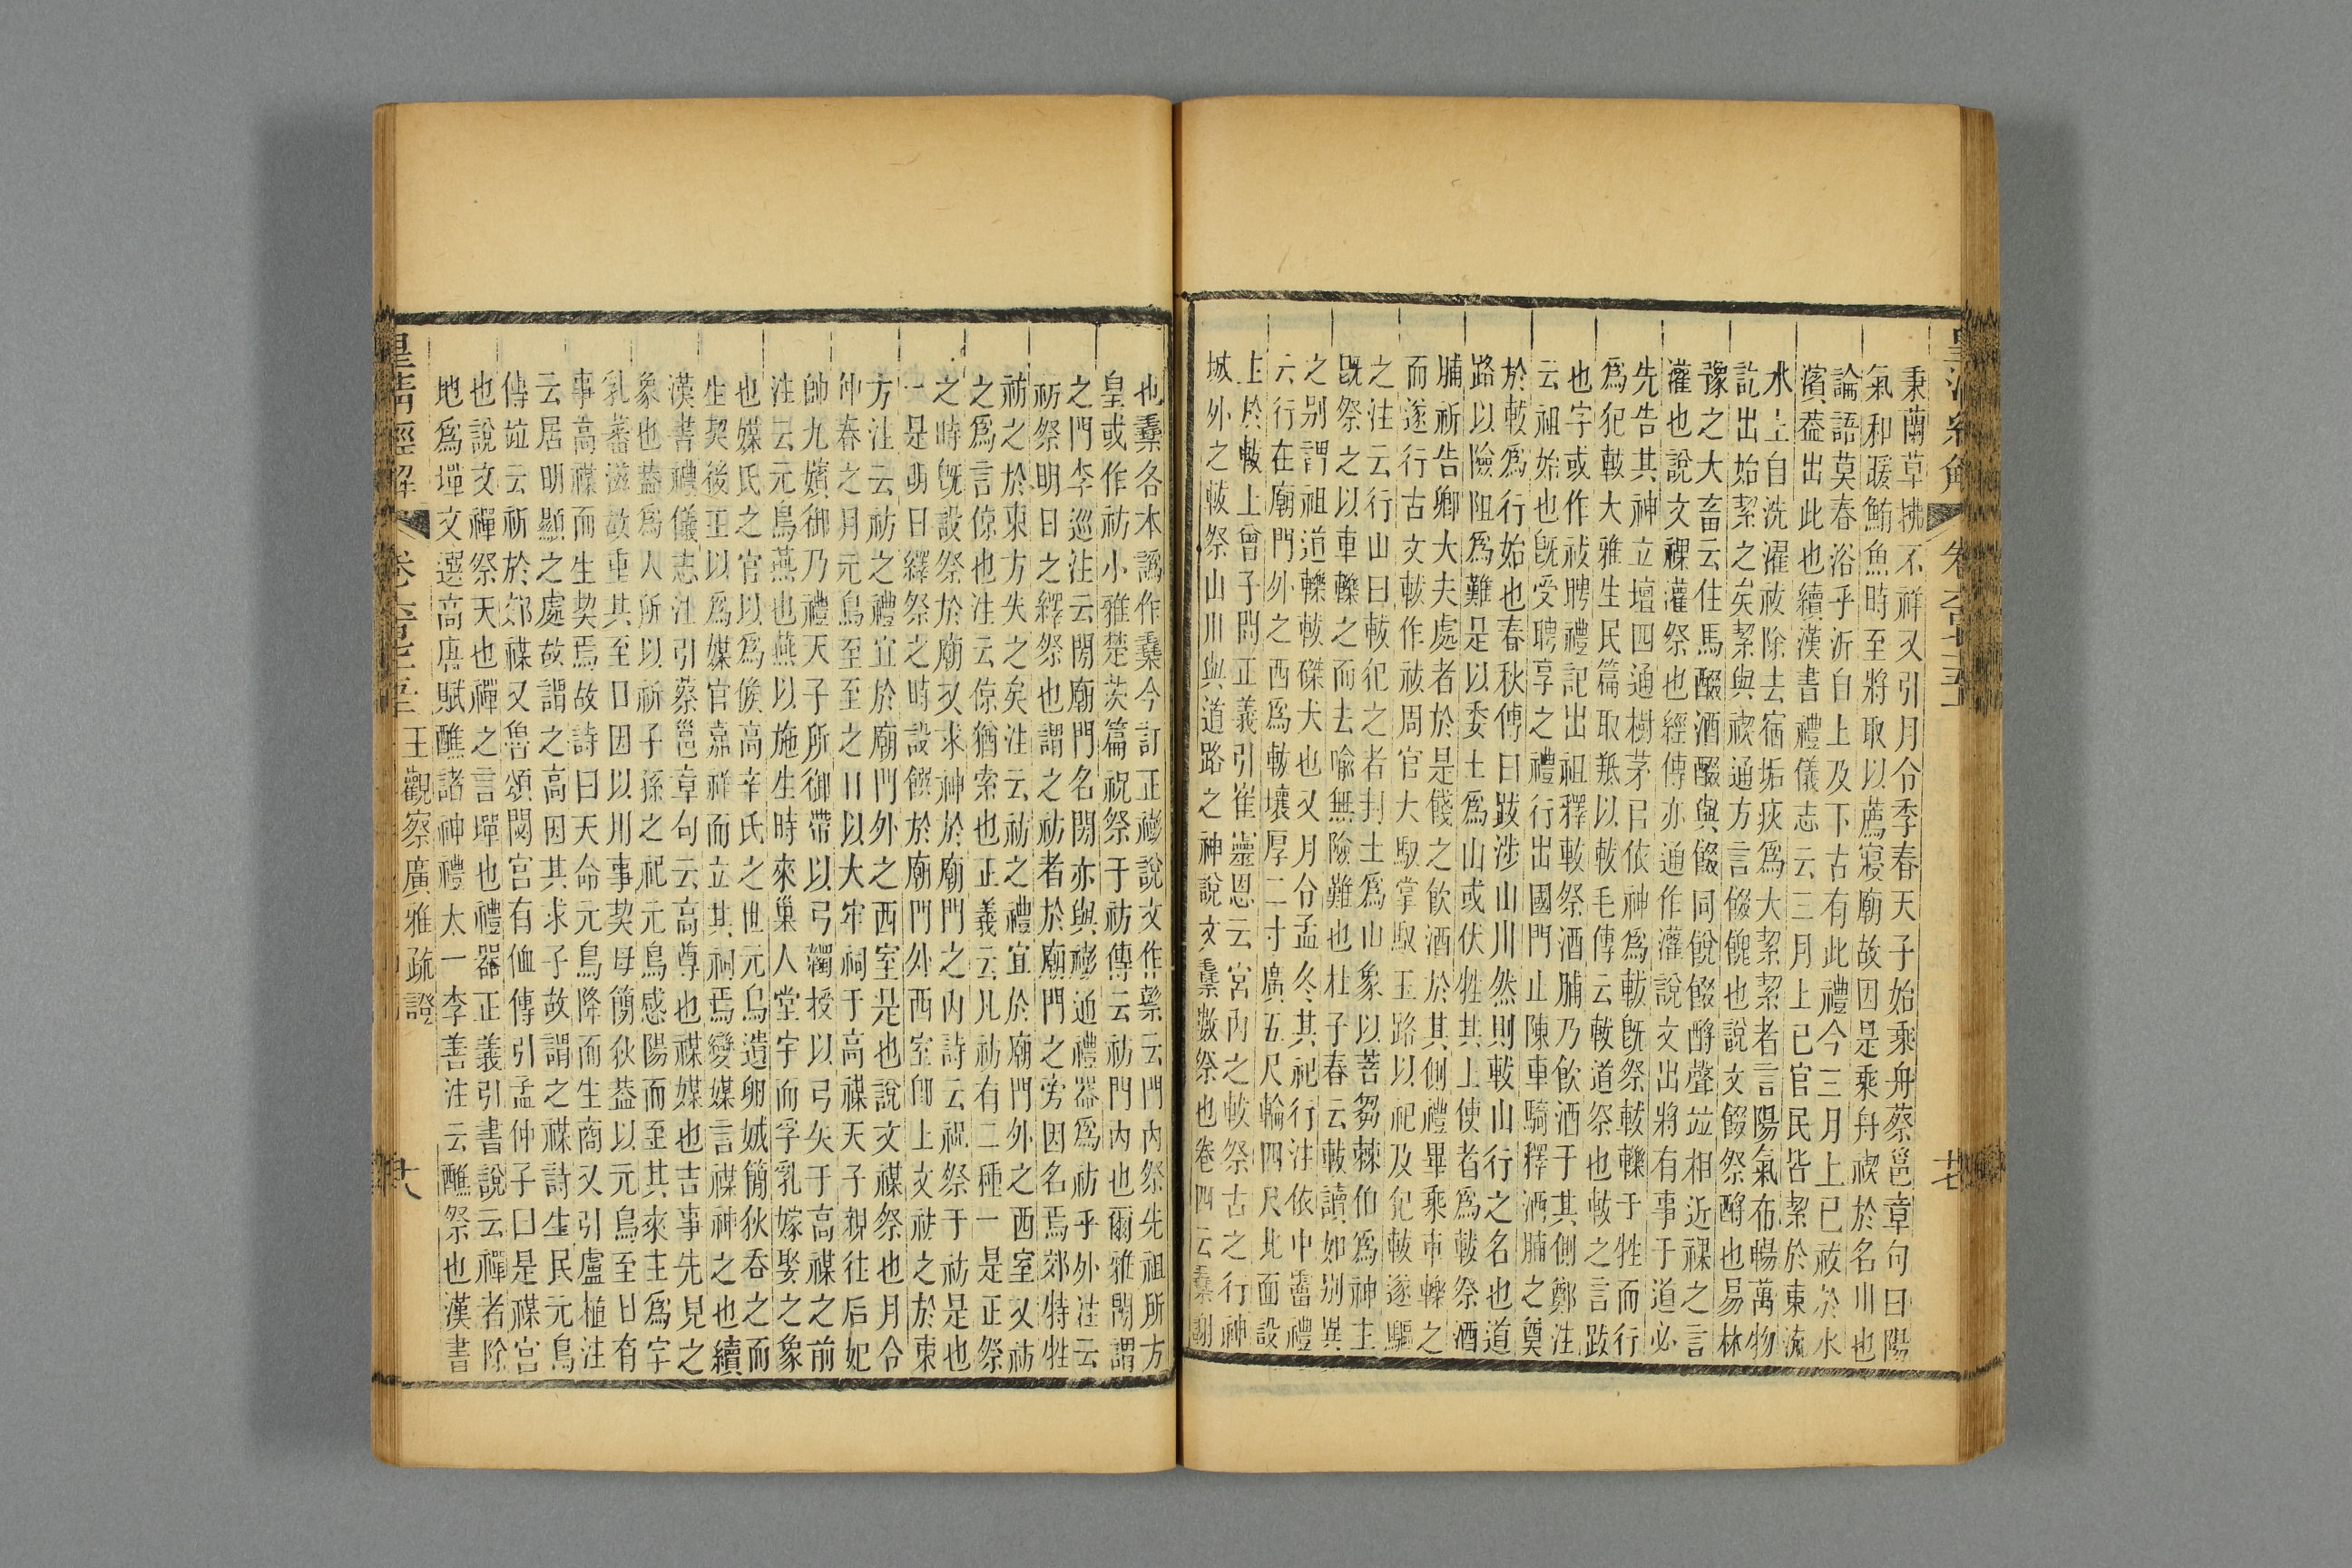 秉蘭草拂不祥又引月令季春天子始乘舟蔡邕章句曰陽
氣和暖鮪魚時至將取以薦寢廟故因是乘舟禊於名川也
論語莫春浴乎沂自上及下古有此禮今三月上巳祓於水
濱蓋出此也續漢書禮儀志云三月上巳官民皆絜於東流
水上自洗濯祓除去宿垢疢爲大絜絜者言陽氣布暢萬物
訖出始絜之矣絜與禊通方言餟餽也說文餟祭酹也易林
豫之大畜云住馬醊酒醊與餟同餟酹聲竝相近祼之言
灌也說文祼灌祭也經傳亦通作灌說文出將有事于道必
先告其神立壇四通樹茅㠯依神爲軷旣祭軷轢于牲而行
爲犯軷大雅生民篇取羝以軷毛傳云軷道祭也軷之言跋
也字或作祓聘禮記出祖釋軷祭酒脯乃飮酒于其側鄭注
云祖始也旣受聘享之禮行出國門止陳車騎釋酒脯之奠
於軷爲行始也春秋傳曰跋涉山川然則軷山行之名也道
路以險阻爲難是以委土爲山或伏牲其上使者爲軷祭酒
脯祈告卿大夫處者於是餞之飮酒於其側禮畢乘車轢之
而遂行古文軷作祓周官大馭掌馭玉路以祀及犯軷遂驅
之注云行山曰軷犯之者封土爲山象以菩芻棘伯爲神主
旣祭之以車轢之而去喩無險難也杜子春云軷讀如别異
之别謂祖道轢軷磔犬也又月令孟冬其祀行注依中霤禮
云行在廟門外之西爲軷壤厚二寸廣五尺輪四尺北面設
主於軷上曾子問正義引崔靈恩云宮內之軷祭古之行神
城外之軷祭山川與道路之神說文㯔數祭也卷四云㯔謝
也㯔各本譌作㯔今訂正䄜說文作䄜云門內祭先祖所方
皇或作祊小雅楚茨篇祝祭于祊傳云祊門內也爾雅閍謂
之門李巡注云閍廟門名閍亦與䄜通禮器爲祊乎外注云
祊祭明日之繹祭也謂之祊者於廟門之旁因名焉郊特牲
祊之於東方失之矣注云祊之禮宜於廟門外之西室又祊
之爲言倞也注云倞猶索也正義云凡祊有二種一是正祭
之時旣設祭於廟又求神於廟門之內詩云祝祭于祊是也
一是明日繹祭之時設饌於廟門外西室卽上文祊之於東
方注云祊之禮宜於廟門外之西室是也說文禖祭也月令
仲春之月元鳥至至之日以大牢祠于高禖天子親往后妃
帥九嬪御乃禮天子所御帶以弓韣授以弓矢于高禖之前
注云元鳥燕也燕以施生時來巢人堂宇而孚乳嫁娶之象
也媒氏之官以爲候高辛氏之世元鳥遺卵娀簡狄吞之而
生契後王以爲媒官嘉祥而立其祠焉變媒言禖神之也續
漢書禮儀志注引蔡邕章句云高尊也禖媒也吉事先見之
象也蓋爲人所以祈子孫之祀元鳥感陽而至其來主爲字
乳蕃滋故重其至日因以用事契母簡狄蓋以元鳥至日有
事高禖而生契焉故詩曰天命元鳥降而生商又引盧植注
云居明顯之處故謂之高因其求子故謂之禖詩生民元鳥
傳竝云祈於郊禖又魯頌閟宮有侐傳引孟仲子曰是禖宮
也說文禪祭天也禪之言墠也禮器正義引書說云禪者除
地爲墠文選高唐賦醮諸神禮太一李善注云醮祭也漢書
皇清經解 卷六百七十五 王觀察廣雅疏證 六